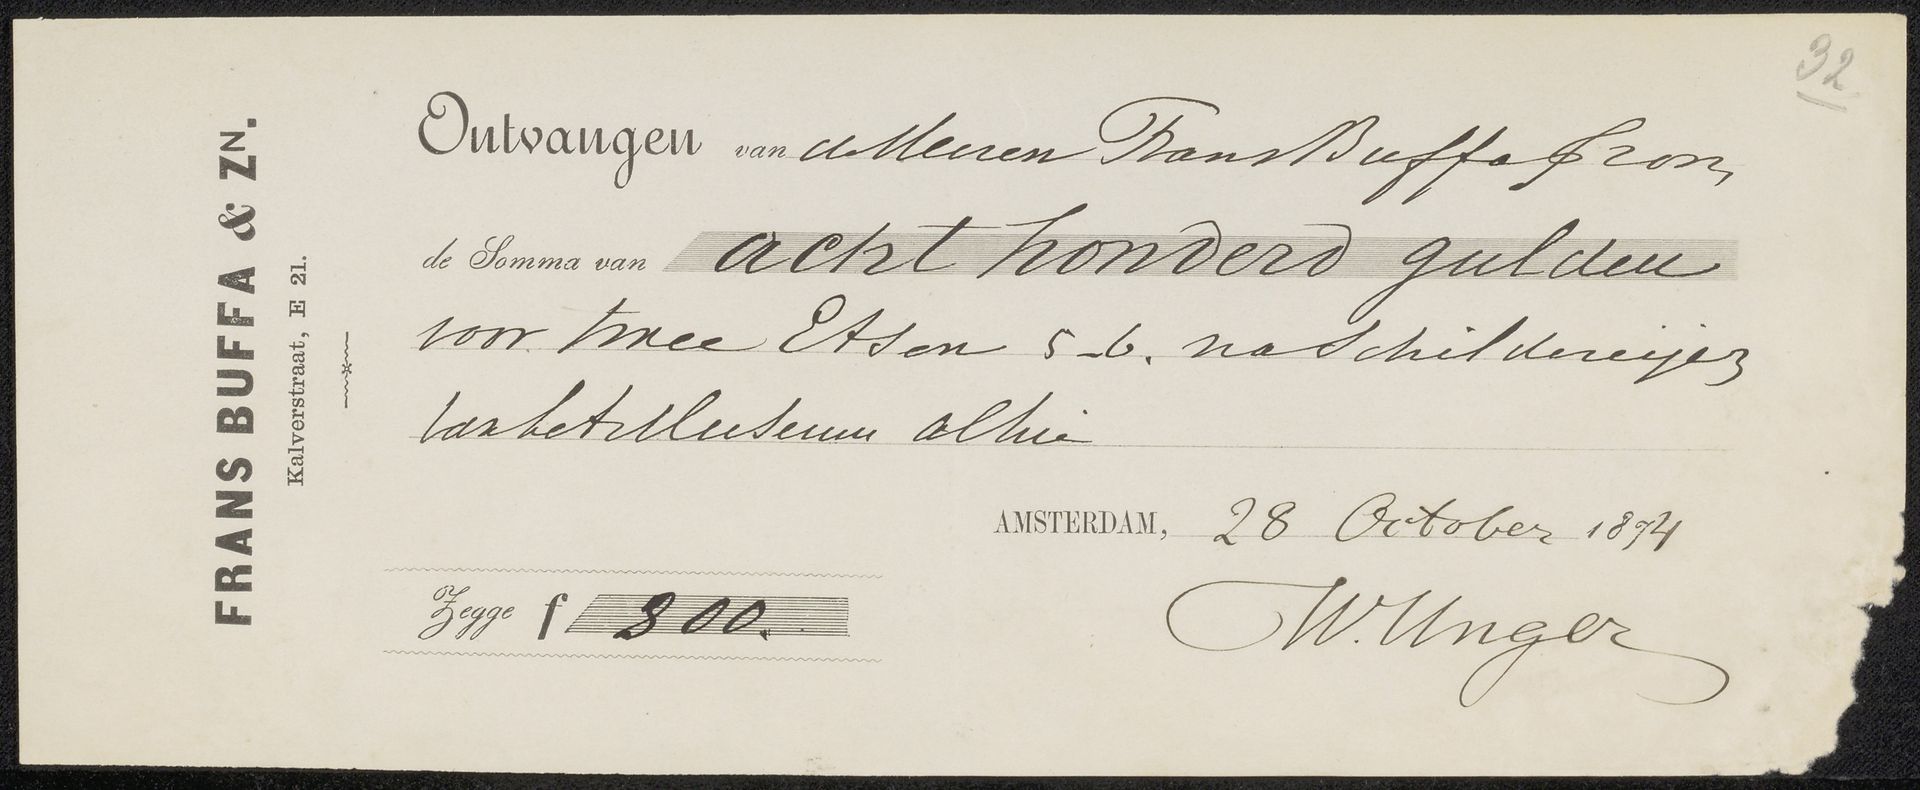 32
FRANS BUFFA & ZN.
Kalverstraat, E 21.
Ontvangen van de Heeren Frans Buffa & Zon,
de Somma van acht honderd gulden
voor twee Etsen 5_6. na Schildereijen
van het Museum alhie
AMSTERDAM, 28 October 1874
Zegge f 800.
W. Unger